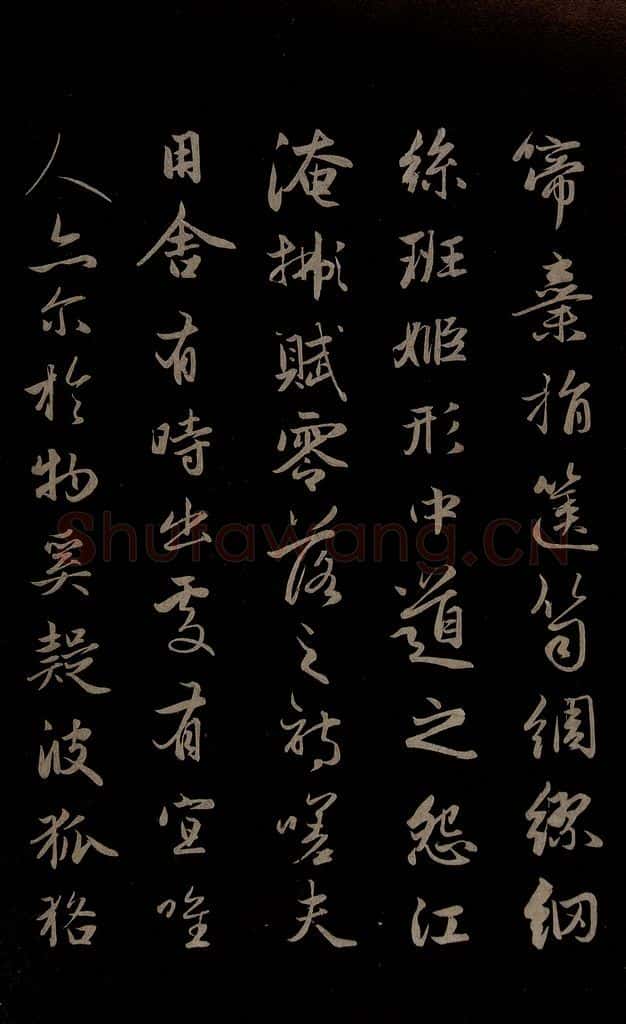 啼棄捐篋笥綢繆網
絲班姬形中道之怨江
淹擬賦零落之詩嗟夫
用舍有時出處有宜唯
人亦尔於物奚疑彼狐狢
Shufawang.cn